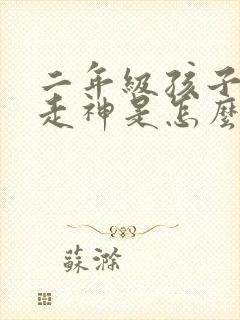 二年級孩子
走神是怎麼
蘇滁